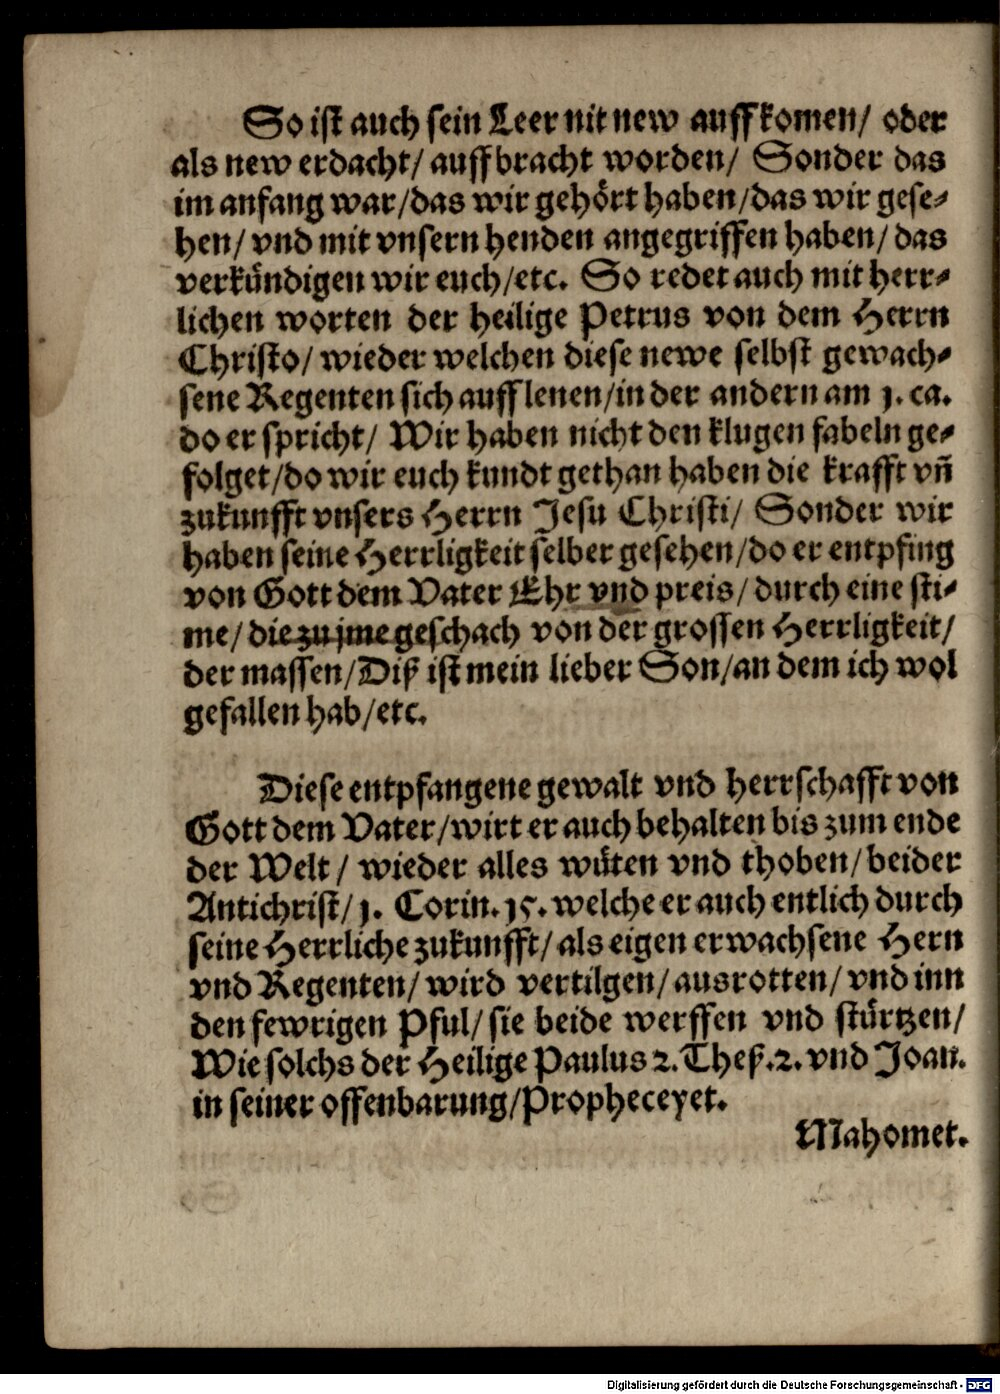 So ist auch sein Leer nit new auffkomen/ oder
als new erdacht/ auffbracht worden/ Sonder das
im anfang war/das wir gehört haben/das wir gese⸗
hen/ vnd mit vnsern henden angegriffen haben/ das
verkündigen wir euch/etc. So redet auch mit herr⸗
lichen worten der heilige Petrus von dem Herrn
Christo/ wieder welchen diese newe selbst gewach⸗
sene Regenten sich aufflenen/in der andern am 1. ca.
do er spricht/ Wir haben nicht den klugen fabeln ge⸗
folget/do wir euch kundt gethan haben die krafft vñ
zukunfft vnsers Herrn Jesu Christi/ Sonder wir
haben seine Herrligkeit selber gesehen/do er entpfing
von Gott dem Vater Ehr vnd preis/ durch eine sti⸗
me/ die zu jme geschach von der grossen Herrligkeit/
der massen/Diß ist mein lieber Son/an dem ich wol
gefallen hab/etc.
Diese entpfangene gewalt vnd herrschafft von
Gott dem Vater/wirt er auch behalten bis zum ende
der Welt/ wieder alles wüten vnd thoben/beider
Antichrist/1. Corin. 15. welche er auch entlich durch
seine Herrliche zukunfft/als eigen erwachsene Hern
vnd Regenten/ wird vertilgen/ausrotten/vnd inn
den fewrigen Pful/sie beide werffen vnd stürtzen/
Wie solchs der Heilige Paulus 2. Theß. 2. vnd Joan.
in seiner offenbarung/Propheceyet.
Mahomet.
Digitalisierung gefördert durch die Deutsche Forschungsgemeinschaft - DFG